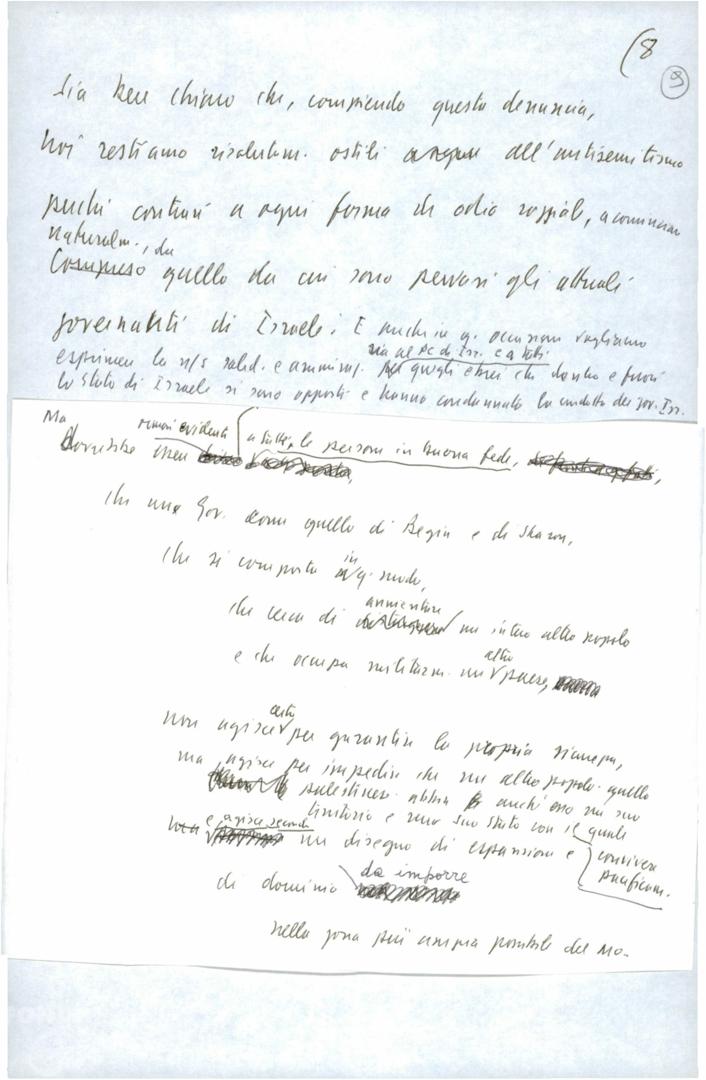 (8
9
Sia ben chiaro che, compiendo questa denuncia,
noi restiamo risolutam. ostili all'antisemitismo
contrari a ogni forma di odio razziale, a cominciare
naturalm., da
Compreso quello da cui sono pervasi gli attuali
governanti di Israele. E anche in q. occasione vogliamo
sia al PC di Isr. e a tutti
esprimere la n/s solid. e ammiraz. per quegli ebrei che dentro e fuori
lo Stato di Israele si sono opposti e hanno condannato la condotta del gov. Isr.
Ma ormai evidente
dovrebbe essere a tutte le persone in buona fede,
che un Gov. come quello di Begin e di Sharon,
che si comporta in q. modo,
annientare
che cerca di un intero altro popolo
altro
e che occupa militarm. un paese,
certo
non agisce per garantire la propria sicurezza,
ma agisce per impedire che un altro popolo quello
palestinese abbia anch'esso un suo
territorio e uno suo stato con il quale
convivere
pacificam.
e agisce secondo
un disegno di espansione e
di dominio da imporre
nella zona più ampia possibile del MO.